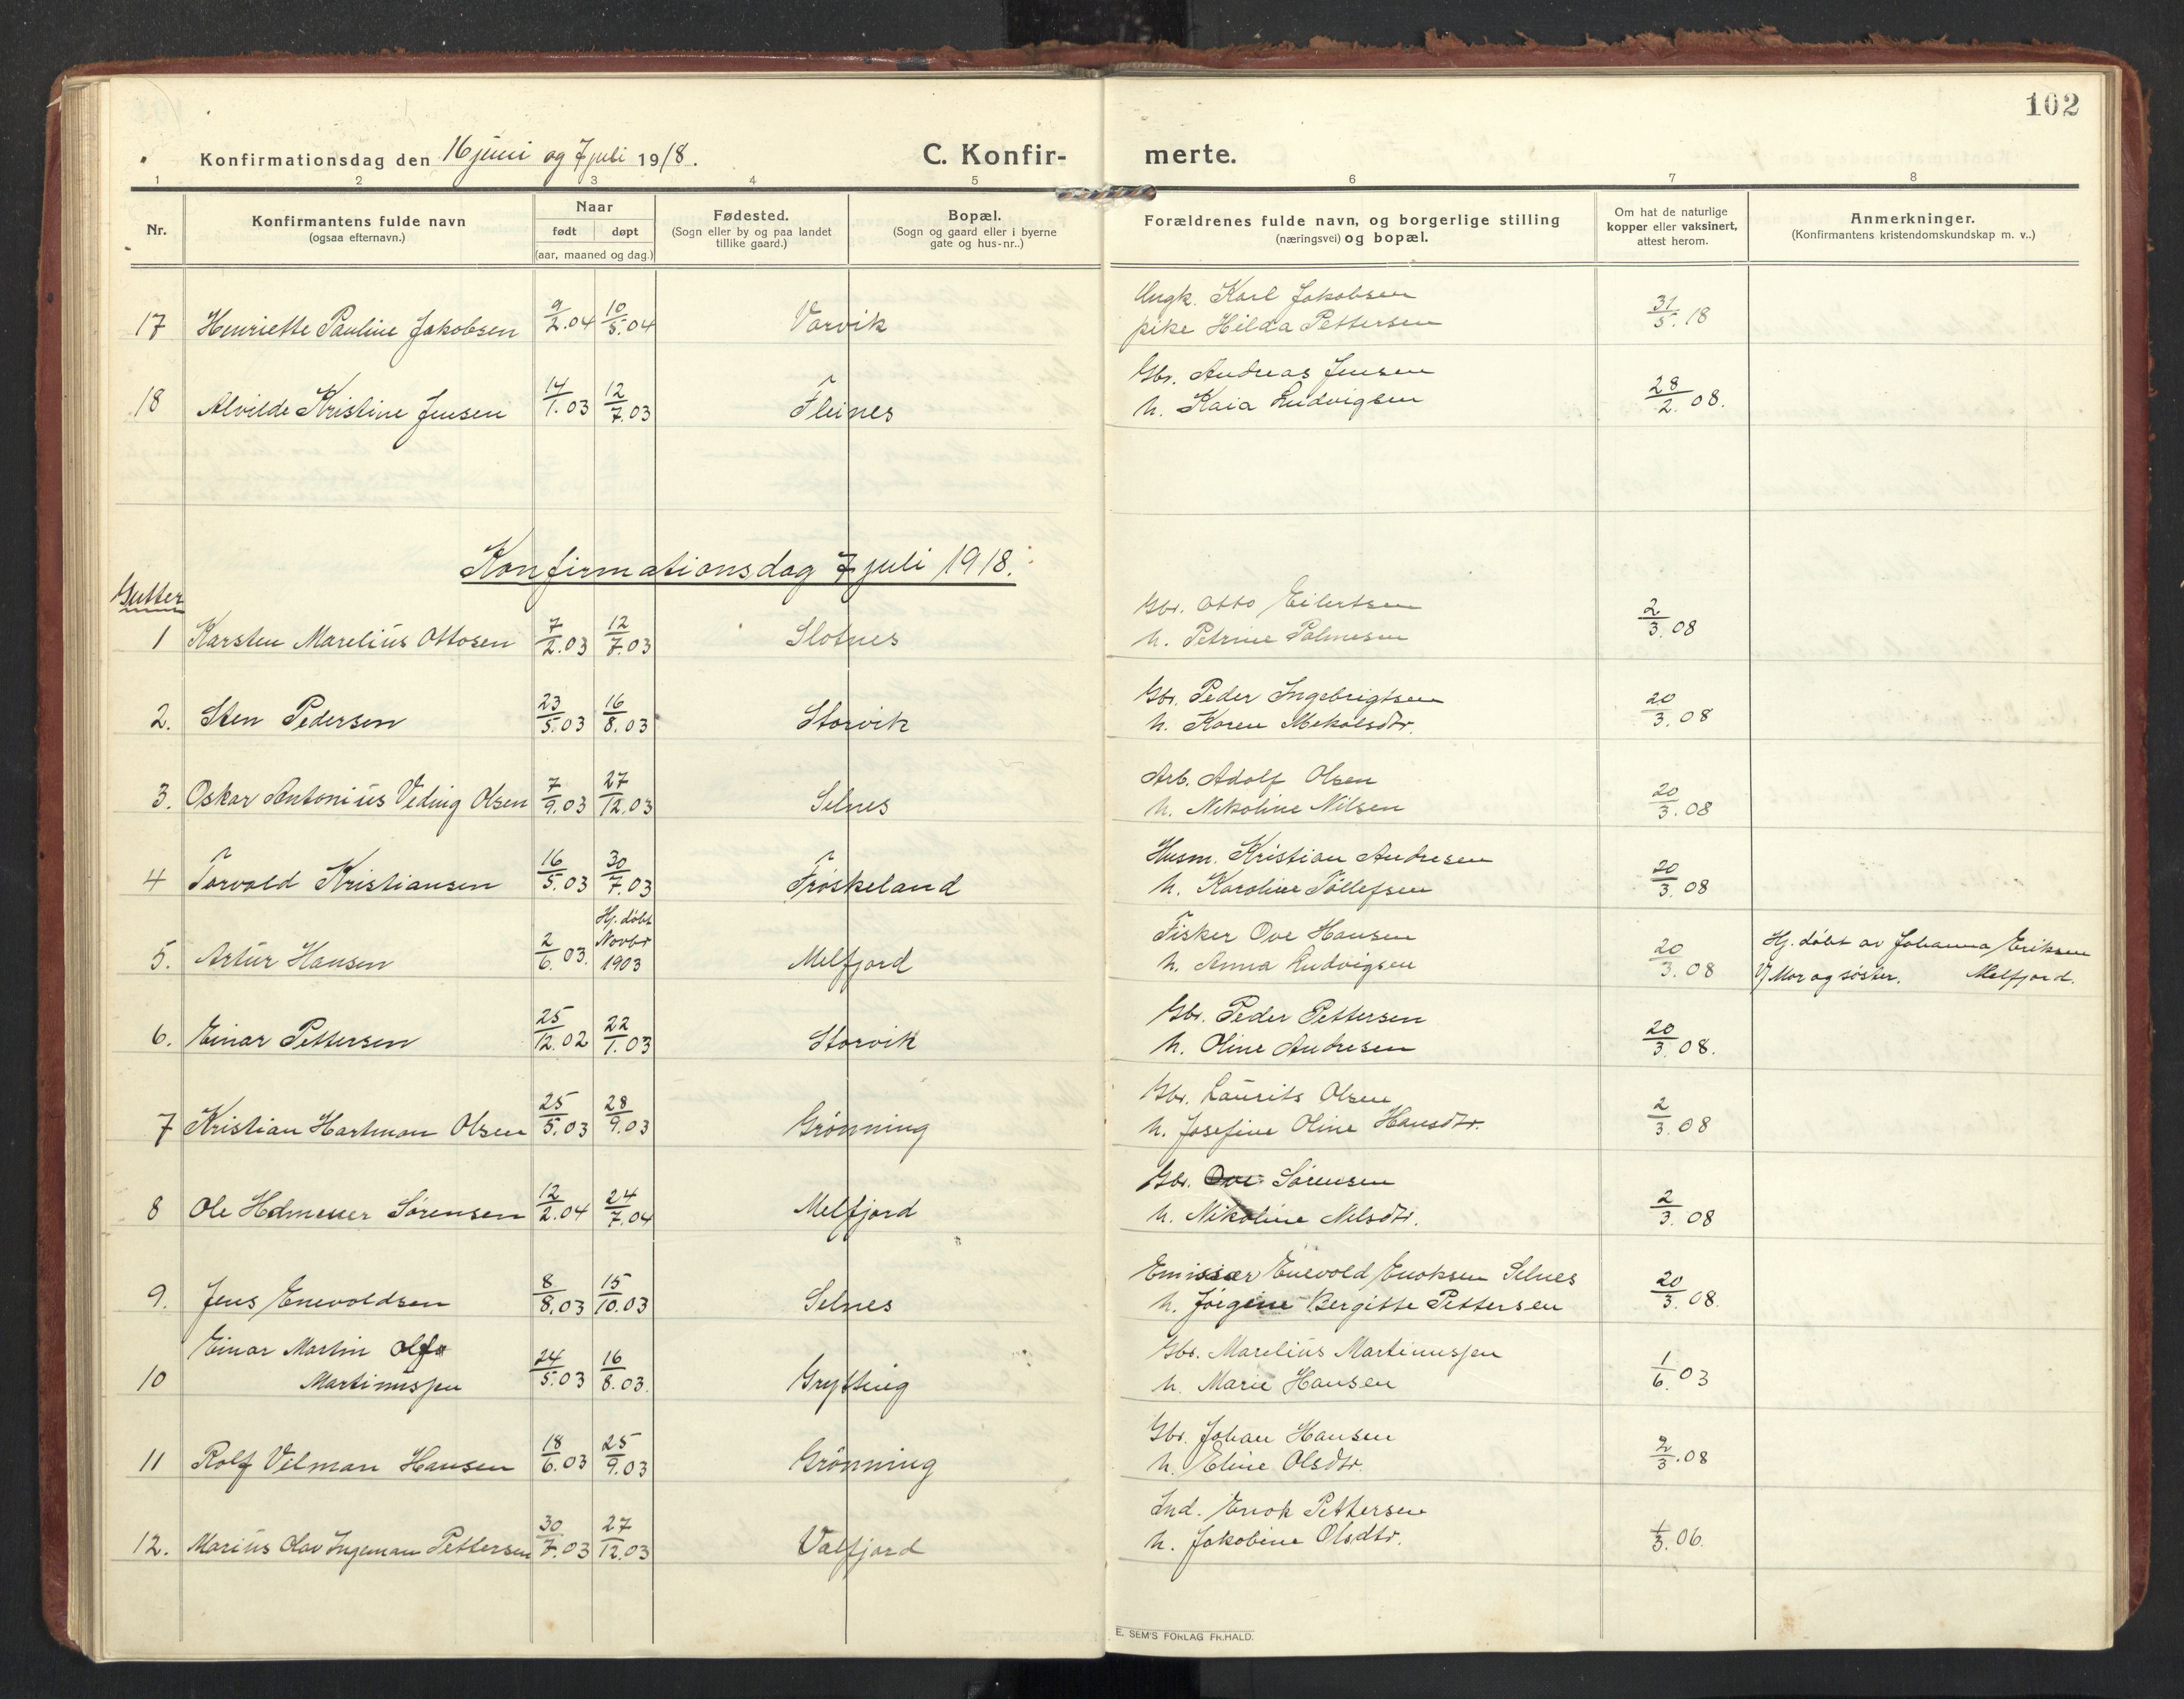 102
Konfirmationsdag den 16 juni og 7 juli 1918.
C. Konfir-merte.
1 2 3 4 5 6 7 8
Nr.
Konfirmantens fulde navn
(ogsaa efternavn.)
Naar
født døpt
(aar, maaned og dag.)
Fødested.
(Sogn eller by og paa landet
tillike gaard.)
Bopæl.
(Sogn og gaard eller i byerne
gate og hus-nr..)
Forældrenes fulde navn, og borgerlige stilling
(næringsvei) og bopæl.
Om hat de naturlige
kopper eller vaksinert,
attest herom.
Anmerkninger.
(Konfirmantens kristendomskundskap m. v..)
Ungk. Karl Jakobsen
17 Henriette Pauline Jakobsen 9/2.04 10/5.04 Vorvik pike Hilda Pettersen 31/5.18
Gbr. Andreas Jensen
18 Alvilde Kristine Jensen 14/1.03 12/7.03 Fleines h. Kaia Ludvigsen 28/2.08.
Konfirmationsdag 7 juli 1918.
Gutter
Gbr. Otto Eilertsen
1 Karsten Marelius Ottosen 7/2.03 12/7.03 Slotnes h. Petrine Palmesen 2/3.08
Gbr. Peder Ingebrigtsen
2. Sten Pedersen 23/5.03 16/8.03 Storvik h. Karen Mekalsdtr. 20/3.08
Arb. Adolf Olsen
3. Oskar Antonius Veding Olsen 7/9.03 27/12.03 Selnes h. Nikoline Nilsen 20/3.08
Husm. Kristian Andresen
4 Torvald Kristiansen 16/5.03 30/7.03 Frøskeland h. Karoline Tollefsen 20/3.08
Fisker Ove Hansen
5. Artur Hansen 2/6.03. Hj. døbt Novbr 1903 Melfjord h. Anna Ludvigsen 20/3.08 Hj. døbt av Johanna Eriksen
V/ Mor og søster. Melfjord.
Gbr. Peder Pettersen
6. Einar Pettersen 25/12.02 22/1.03 Storvik h. Oline Andresen 20/3.08.
Gbr. Laurits Olsen
7 Kristian Hartman Olsen 25/5.03 28/9.03 Grønning h. Josefine Oline Hansdtr. 2/3.08
Gbr. Ove Sørensen
8 Ole Hdmener Sørensen 12/2.04 24/7.04 Melfjord h. Nikoline Nilsdtr. 2/3.08
Emissær Enevold Enoksen Selnes
9. Jens Enevoldsen 8/8.03 15/10.03 Selnes h. Jørgine Bergitte Pettersen 20/3.08.
Einar Martin Gbr. Marelius Martinussen
10 Martinussen 24/5.03 16/8.03. Grytting h. Marie Hansen 1/6.03
Gbr. Johan Hansen
11 Rolf Velman Hansen 18/6.03 25/9.03 Grønning h. Eline Olsdtr. 2/3.08
Ind. Enok Pettersen
12. Marius Olav Ingeman Pettersen 30/7.03 27/12.03 Valfjord h. Jakobine Olsdtr. 1/3.06.
E. SEM'S FORLAG FR.HALD.